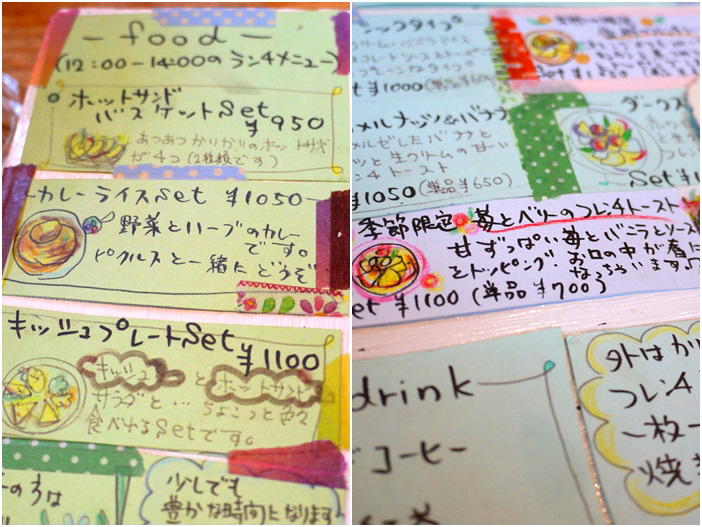 food
(12:00-14:00のランチメニュー)
ホットサンド
バスケットSet
¥950
あつあつかりかりのホットサンド
が4コ(2種類です)
カレーライスSet ¥1050
野菜とハーブのカレー
です。
ピクルスと一緒にどうぞ
キッシュプレートSet
¥1100
キッシュ と ホットサンド
サラダと… ちょこっと色々
食べれるSetです。
の方は
少しでも
豊かな時間になります
シックタイプ
¥1000(単品
メルナッツ&バナナ
メルゼしたバナナと
ッツと生クリームの甘い
ンチトースト
¥1050(単品¥650)
ダークス
Set ¥1
季節限定 苺とベリーのフレンチトースト
甘ずっぱい苺とバニラとソース
をトッピング♪お口の中が春に
なっちゃいます♪
Set ¥1100(単品¥700)
drink
コーヒー
外はかり
フレンチ
一枚一
焼き